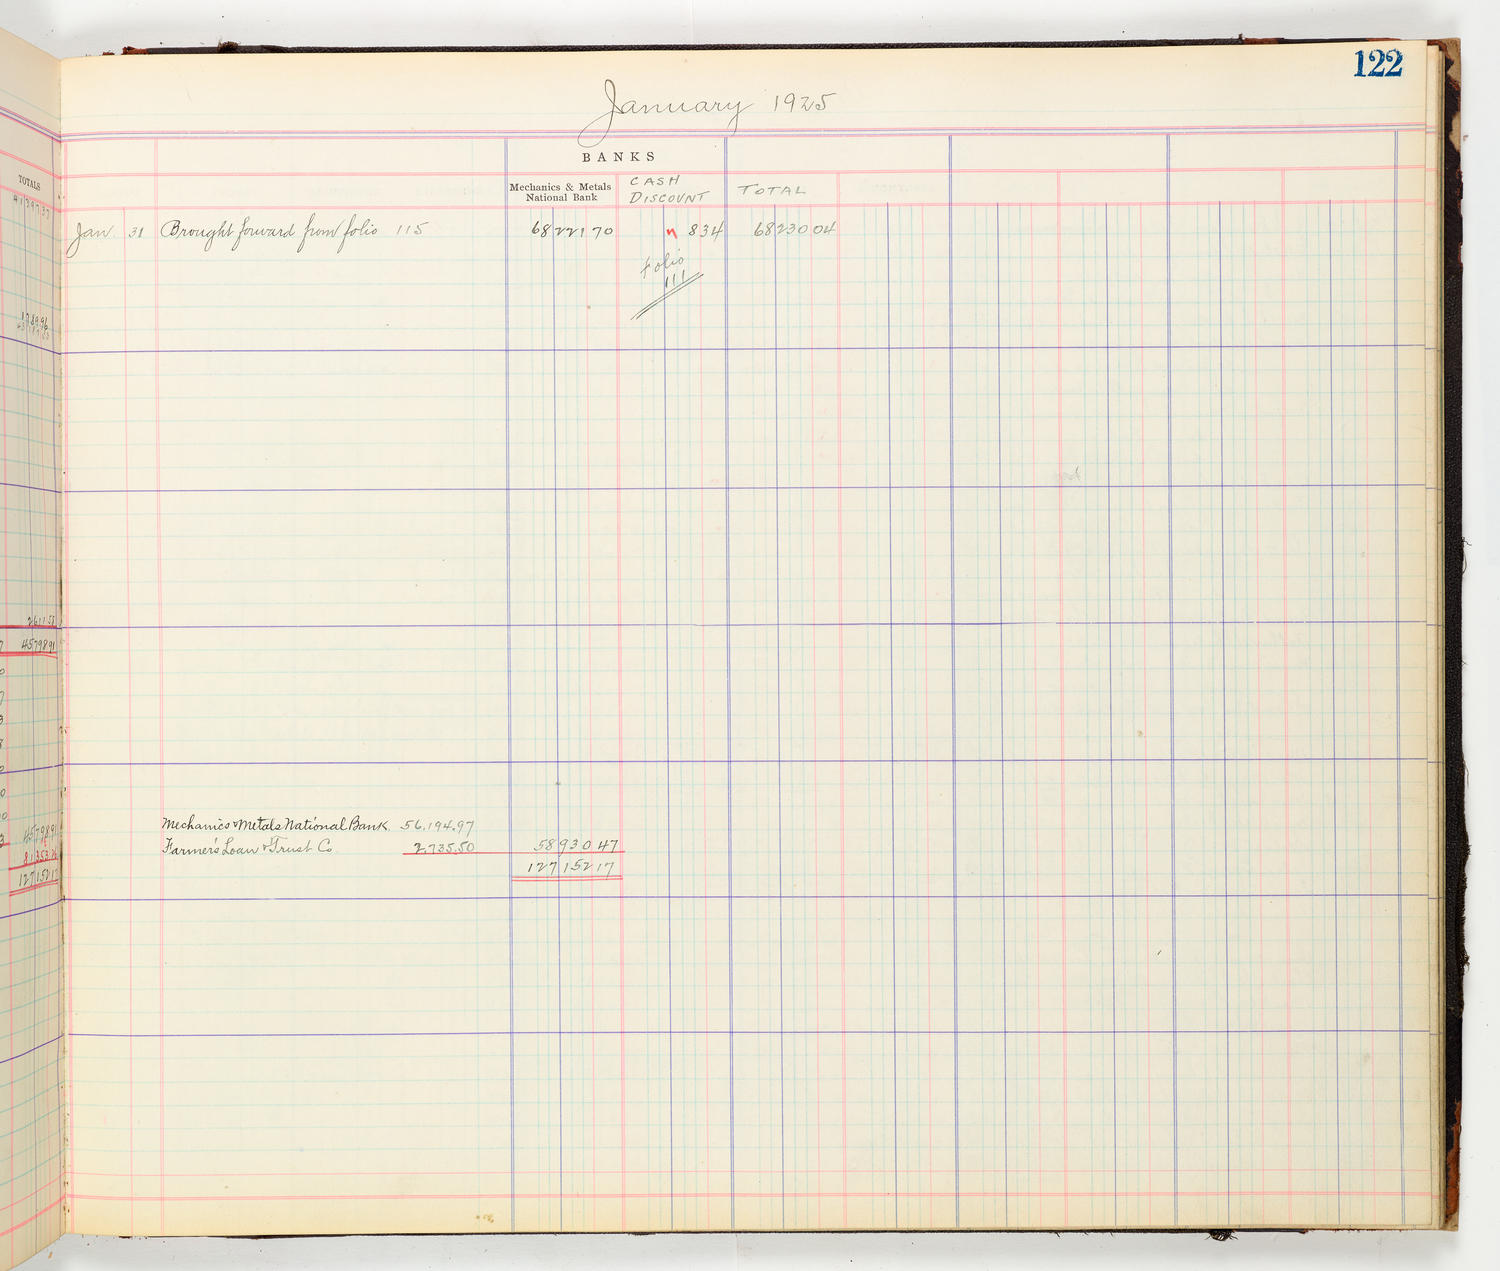 122
January 1925
BANKS
TOTALS
Mechanics & Metals
National Bank
CASH
DISCOUNT
TOTAL
Jan. 31 Brought forward from folio 115 68221 70 834 68230 04
Folio
111
2611 58
45798 91
Mechanics & Metals National Bank. 56,194.97
Farmer's Loan & Trust Co 2,735.50 58930 47
127152 17
45798 91
81353 26
127152 17